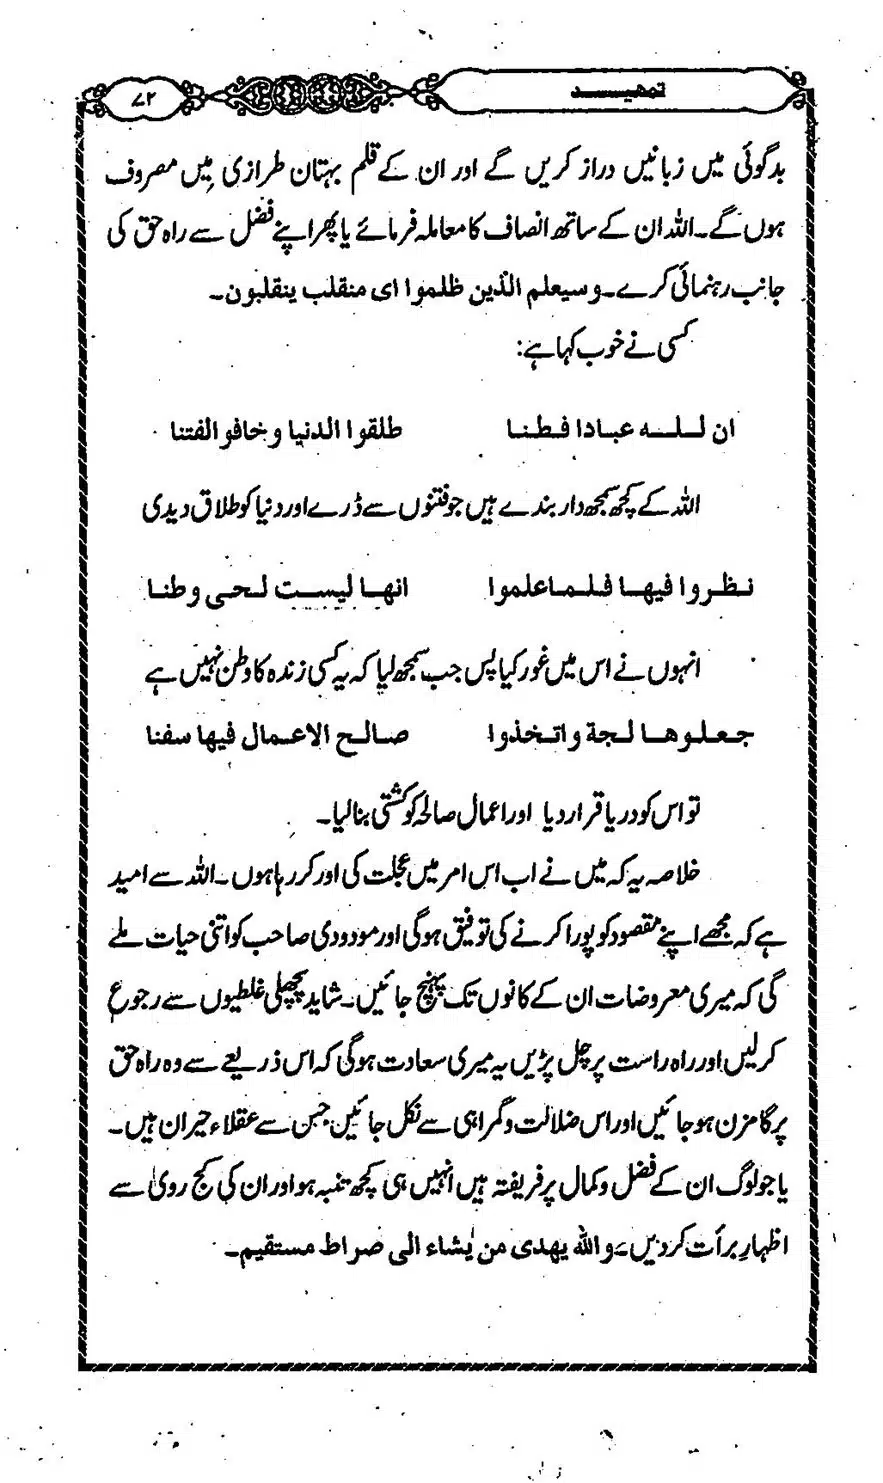 ۷۲
تمهيـــد
بدگوئی میں زبانیں دراز کریں گے اور ان کے قلم بہتان طرازی میں مصروف
ہوں گے۔ اللہ ان کے ساتھ انصاف کا معاملہ فرمائے یا پھر اپنے فضل سے راہ حق کی
جانب رہنمائی کرے۔ وسيعلم الذين ظلموا اى منقلب ينقلبون۔
کسی نے خوب کہا ہے:
ان لـلـــه عبادا فـطـنـا طلقوا الدنيا وخافو الفتنا
اللہ کے کچھ سمجھ دار بندے ہیں جو فتنوں سے ڈرے اور دنیا کو طلاق دیدی
نـظـروا فيهـا فـلـمـا علموا انهـا ليســت لـحـى وطنـا
انہوں نے اس میں غور کیا پس جب سمجھ لیا کہ یہ کسی زندہ کا وطن نہیں ہے
جـعـلـوهـا لـجة واتـخذوا صـالـح الاعـمال فيها سفنا
تو اس کو دریا قرار دیا اور اعمال صالحہ کو کشتی بنالیا۔
خلاصہ یہ کہ میں نے اب اس امر میں عجلت کی اور کر رہا ہوں۔ اللہ سے امید
ہے کہ مجھے اپنے مقصود کو پورا کرنے کی توفیق ہوگی اور مودودی صاحب کو اتنی حیات ملے
گی کہ میری معروضات ان کے کانوں تک پہنچ جائیں۔ شاید پچھلی غلطیوں سے رجوع
کر لیں اور راہ راست پر چل پڑیں یہ میری سعادت ہوگی کہ اس ذریعے سے وہ راہ حق
پر گامزن ہو جائیں اور اس ضلالت و گمراہی سے نکل جائیں جس سے عقلاء حیران ہیں۔
یا جو لوگ ان کے فضل و کمال پر فریفتہ ہیں انہیں ہی کچھ تنبہ ہو اور ان کی کج روی سے
اظہارِ برأت کر دیں۔ والله يهدى من يشاء الى صراط مستقيم۔